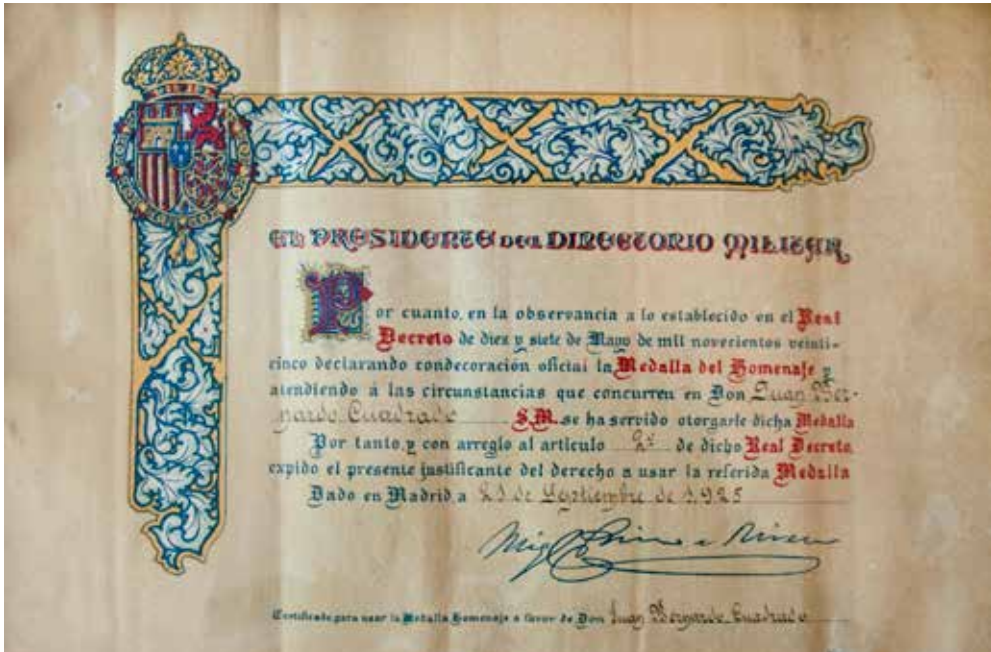 EL PRESIDENTE DEL DIRECTORIO MILITAR
Por cuanto, en la observancia a lo establecido en el Real
Decreto de diez y siete de Mayo de mil novecientos veinti-
cinco declarando condecoración oficial la Medalla del Homenaje y
atendiendo á las circunstancias que concurren en Don Juan Ber-
nardo Cuadrado S.M. se ha servido otorgarle dicha Medalla
Por tanto, y con arreglo al artículo 2º de dicho Real Decreto,
expido el presente justificante del derecho a usar la referida Medalla
Dado en Madrid, a de Septiembre de 1.925
Miguel Primo de Rivera
Certificado para usar la Medalla Homenaje a favor de Don Juan Bernardo Cuadrado